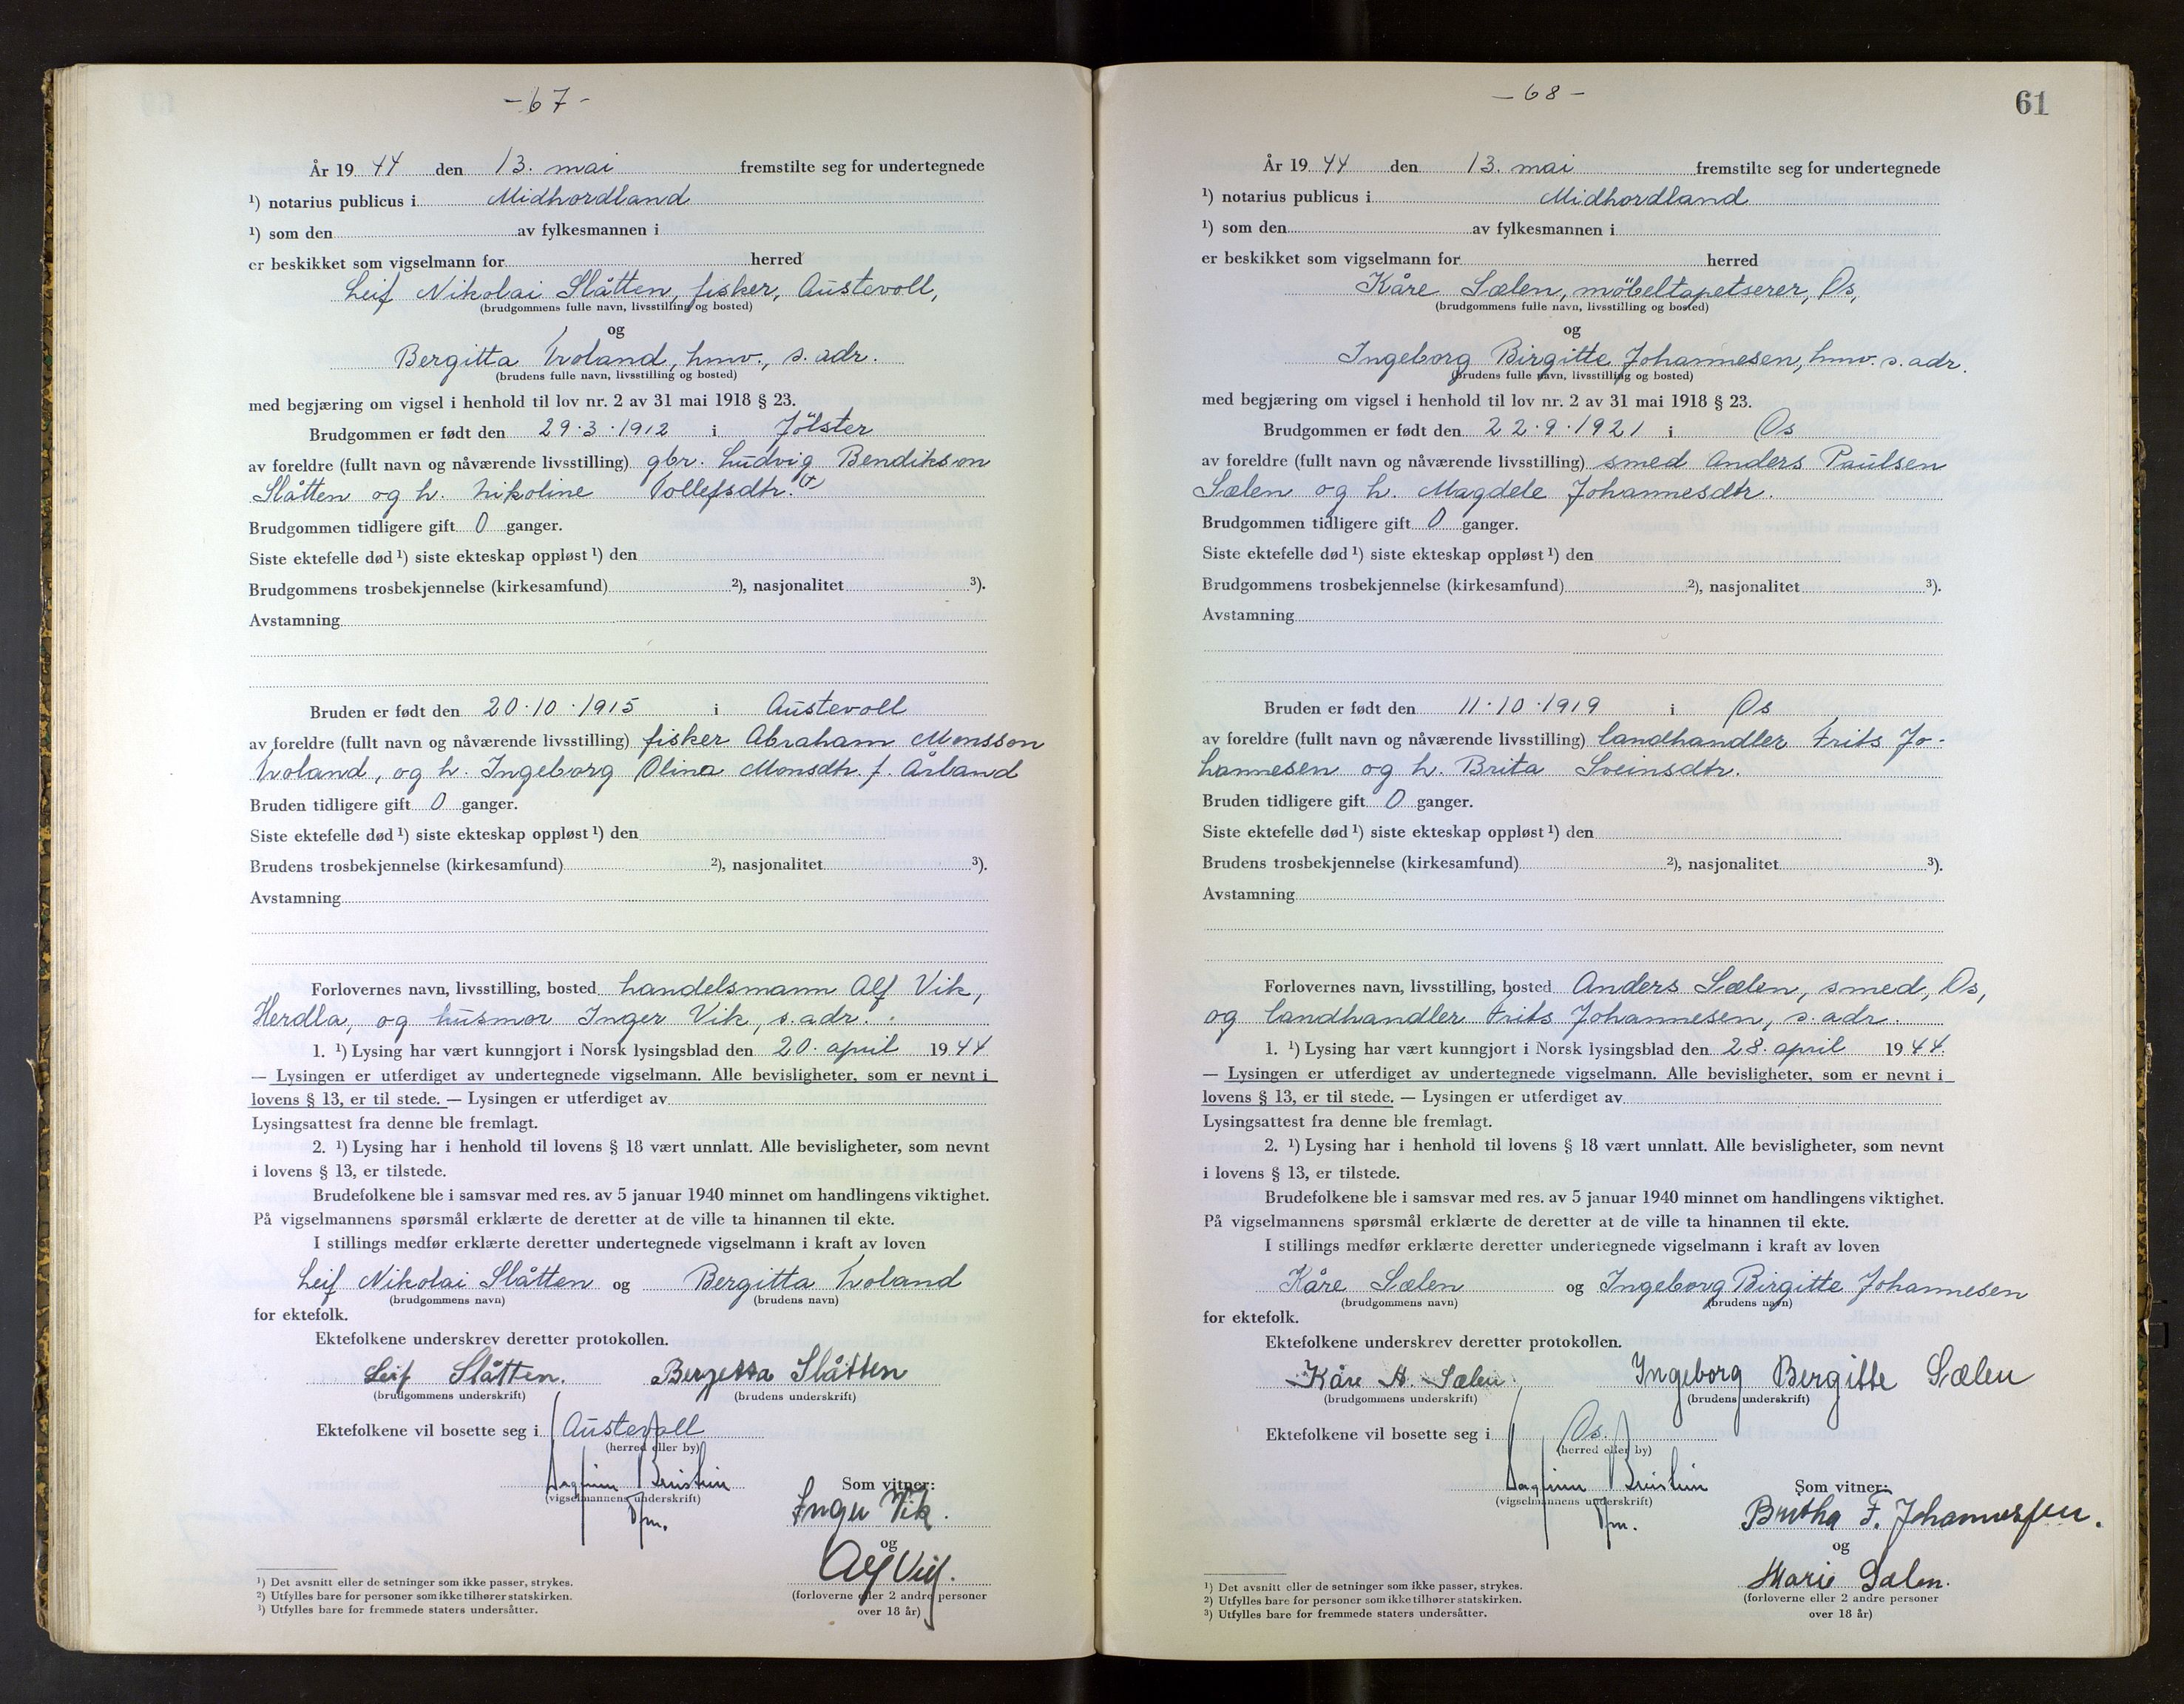 -67-
År 1944 den 13. mai fremstilte seg for undertegnede
¹) notarius publicus i Midhordland
¹) som den av fylkesmannen i
er beskikket som vigselmann for herred
Leif Nikolai Slåtten, fisker, Austevoll,
(brudgommens fulle navn, livsstilling og bosted)
og
Bergitta Troland, hmv., s. adr.
(brudens fulle navn, livsstilling og bosted)
med begjæring om vigsel i henhold til lov nr. 2 av 31 mai 1918 § 23.
Brudgommen er født den 29.3.1912 i Jölster
av foreldre (fullt navn og nåværende livsstilling) gbr. Ludvig Bendikson
Slåtten og h. Nikoline Tollefsdtr.
Brudgommen tidligere gift 0 ganger.
Siste ektefelle død ¹) siste ekteskap oppløst ¹) den
Brudgommens trosbekjennelse (kirkesamfund) ²), nasjonalitet ³).
Avstamning
Bruden er født den 20.10.1915 i Austevoll
av foreldre (fullt navn og nåværende livsstilling) fisker Abraham Monsson
Troland, og h. Ingeborg Olina Monsdtr. f. Årland
Bruden tidligere gift 0 ganger.
Siste ektefelle død ¹) siste ekteskap oppløst ¹) den
Brudens trosbekjennelse (kirkesamfund) ²), nasjonalitet ³).
Avstamning
Forlovernes navn, livsstilling, bosted handelsmann Alf Vik,
Herdla, og husmor Inger Vik, s. adr.
1. ¹) Lysing har vært kunngjort i Norsk lysingsblad den 20. april 1944
— Lysingen er utferdiget av undertegnede vigselmann. Alle bevisligheter, som er nevnt i
lovens § 13, er til stede. — Lysingen er utferdiget av
Lysingsattest fra denne ble fremlagt.
2. ¹) Lysing har i henhold til lovens § 18 vært unnlatt. Alle bevisligheter, som nevnt
i lovens § 13, er tilstede.
Brudefolkene ble i samsvar med res. av 5 januar 1940 minnet om handlingens viktighet.
På vigselmannens spørsmål erklærte de deretter at de ville ta hinannen til ekte.
I stillings medfør erklærte deretter undertegnede vigselmann i kraft av loven
Leif Nikolai Slåtten og Bergitta Troland
(brudgommens navn) (brudens navn)
for ektefolk.
Ektefolkene underskrev deretter protokollen.
Leif Slåtten. Bergetta Slåtten
(brudgommens underskrift) (brudens underskrift)
Ektefolkene vil bosette seg i Austevoll
(herred eller by)
(vigselmannens underskrift)
Som vitner:
Inger Vik.
og
Alf Vik.
(forloverne eller 2 andre personer
over 18 år)
¹) Det avsnitt eller de setninger som ikke passer, strykes.
²) Utfylles bare for personer som ikke tilhører statskirken.
³) Utfylles bare for fremmede staters undersåtter.
-68-
61
År 1944 den 13. mai fremstilte seg for undertegnede
¹) notarius publicus i Midhordland
¹) som den av fylkesmannen i
er beskikket som vigselmann for herred
Kåre Sælen, möbeltapetserer, Os,
(brudgommens fulle navn, livsstilling og bosted)
og
Ingeborg Birgitte Johannesen, hmv. s. adr.
(brudens fulle navn, livsstilling og bosted)
med begjæring om vigsel i henhold til lov nr. 2 av 31 mai 1918 § 23.
Brudgommen er født den 22.9.1921 i Os
av foreldre (fullt navn og nåværende livsstilling) smed Anders Paulsen
Sælen og h. Magdele Johannesdtr.
Brudgommen tidligere gift 0 ganger.
Siste ektefelle død ¹) siste ekteskap oppløst ¹) den
Brudgommens trosbekjennelse (kirkesamfund) ²), nasjonalitet ³).
Avstamning
Bruden er født den 11.10.1919 i Os
av foreldre (fullt navn og nåværende livsstilling) landhandler Frits Jo-
hannesen og h. Brita Sveinsdtr.
Bruden tidligere gift 0 ganger.
Siste ektefelle død ¹) siste ekteskap oppløst ¹) den
Brudens trosbekjennelse (kirkesamfund) ²), nasjonalitet ³).
Avstamning
Forlovernes navn, livsstilling, bosted Anders Sælen, smed, Os,
og landhandler Frits Johannesen, s. adr.
1. ¹) Lysing har vært kunngjort i Norsk lysingsblad den 28. april 1944.
— Lysingen er utferdiget av undertegnede vigselmann. Alle bevisligheter, som er nevnt i
lovens § 13, er til stede. — Lysingen er utferdiget av
Lysingsattest fra denne ble fremlagt.
2. ¹) Lysing har i henhold til lovens § 18 vært unnlatt. Alle bevisligheter, som nevnt
i lovens § 13, er tilstede.
Brudefolkene ble i samsvar med res. av 5 januar 1940 minnet om handlingens viktighet.
På vigselmannens spørsmål erklærte de deretter at de ville ta hinannen til ekte.
I stillings medfør erklærte deretter undertegnede vigselmann i kraft av loven
Kåre Sælen og Ingeborg Birgitte Johannesen
(brudgommens navn) (brudens navn)
for ektefolk.
Ektefolkene underskrev deretter protokollen.
Kåre A. Sælen Ingeborg Bergitte Sælen
(brudgommens underskrift) (brudens underskrift)
Ektefolkene vil bosette seg i Os.
(herred eller by)
(vigselmannens underskrift)
Som vitner:
F. Johannessen.
og
Marie Sælen.
(forloverne eller 2 andre personer
over 18 år)
¹) Det avsnitt eller de setninger som ikke passer, strykes.
²) Utfylles bare for personer som ikke tilhører statskirken.
³) Utfylles bare for fremmede staters undersåtter.